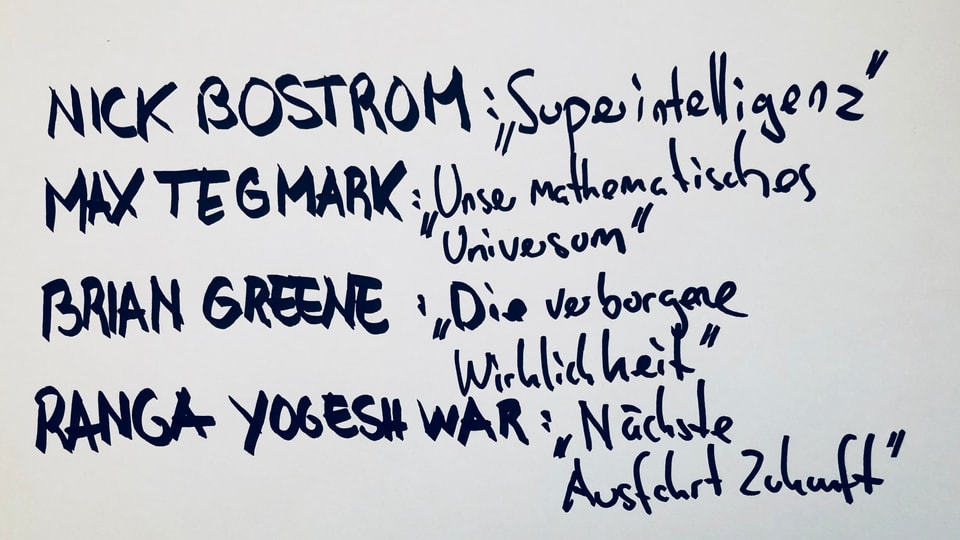 NICK BOSTROM : „Superintelligenz"
MAX TEGMARK : „Unser mathematisches
Universum"
BRIAN GREENE : „Die verborgene
Wirklichkeit"
RANGA YOGESHWAR : „Nächste
Ausfahrt Zukunft"